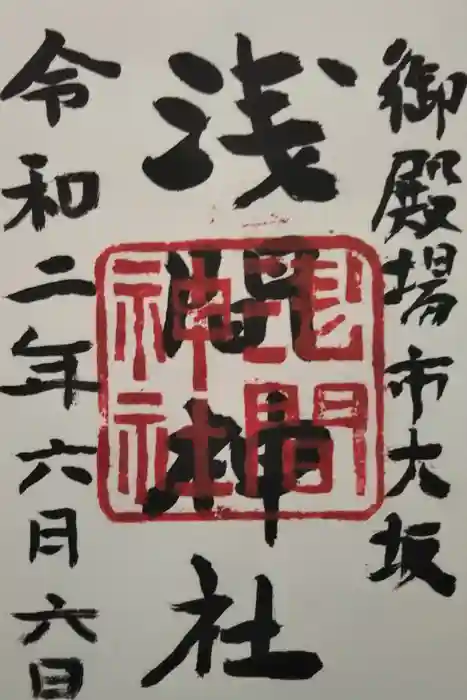 御殿場市大坂
浅間神社
令和二年六月六日